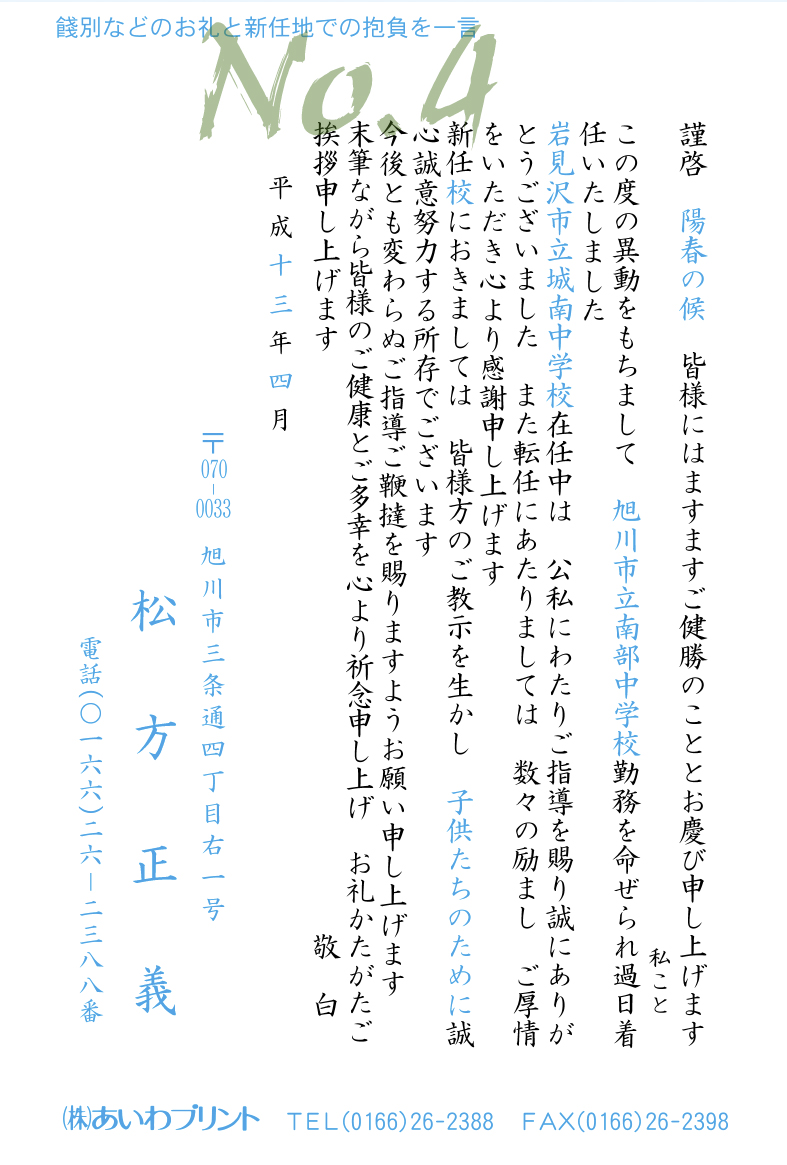 餞別などのお礼と新任地での抱負を一言
No.4
謹啓　陽春の候　皆様にはますますご健勝のこととお慶び申し上げます
私こと
この度の異動をもちまして　旭川市立南部中学校勤務を命ぜられ過日着
任いたしました
岩見沢市立城南中学校在任中は　公私にわたりご指導を賜り誠にありが
とうございました　また転任にあたりましては　数々の励まし　ご厚情
をいただき心より感謝申し上げます
新任校におきましては　皆様方のご教示を生かし　子供たちのために誠
心誠意努力する所存でございます
今後とも変わらぬご指導ご鞭撻を賜りますようお願い申し上げます
末筆ながら皆様のご健康とご多幸を心より祈念申し上げ　お礼かたがたご
挨拶申し上げます
敬白
平成十三年四月
〒070-0033　旭川市三条通四丁目右一号
松方正義
電話(〇一六六)二六―二三八八番
㈱あいわプリント　TEL(0166)26-2388　FAX(0166)26-2398